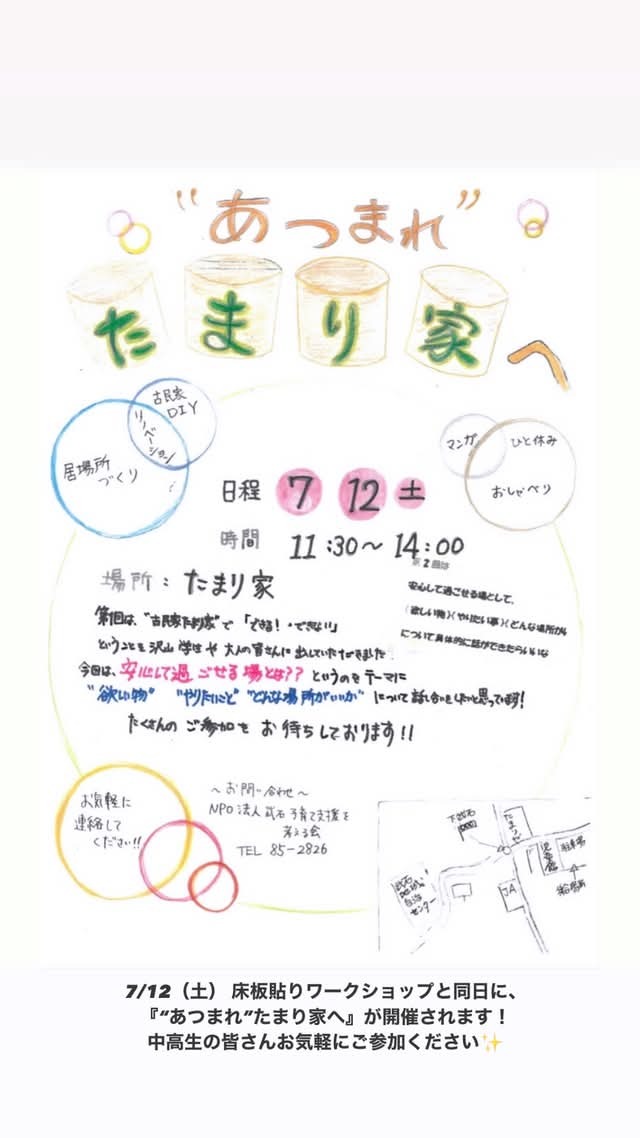 “あつまれ”
たまり家へ
古民家
DIY
リノベーション
居場所
づくり
マンガ
ひと休み
おしゃべり
日程 7 12 土
時間 11:30〜14:00
場所：たまり家
第2回は
安心して過ごせる場として、
(欲しい物)(やりたい事)(どんな場所がい
について具体的に話ができたらいいな
第1回は、“古民家たまり家”で「できる！・できない」
ということを沢山 学生や大人の皆さんに出していただきました
今回は、安心して過ごせる場とは??というのをテーマに
“欲しい物” “やりたいこと” “どんな場所がいいか”について話し合いをしたいと思っています!
たくさんの ご参加を お待ちしております!!
お気軽に
連絡して
ください!!
〜お問い合わせ〜
NPO法人 武石子育て支援を
考える会
TEL 85-2826
下武石
たまりや
武石
地域
自治
センター
JA
児童館
駐車場
7/12（土） 床板貼りワークショップと同日に、
『“あつまれ”たまり家へ』が開催されます！
中高生の皆さんお気軽にご参加ください✨